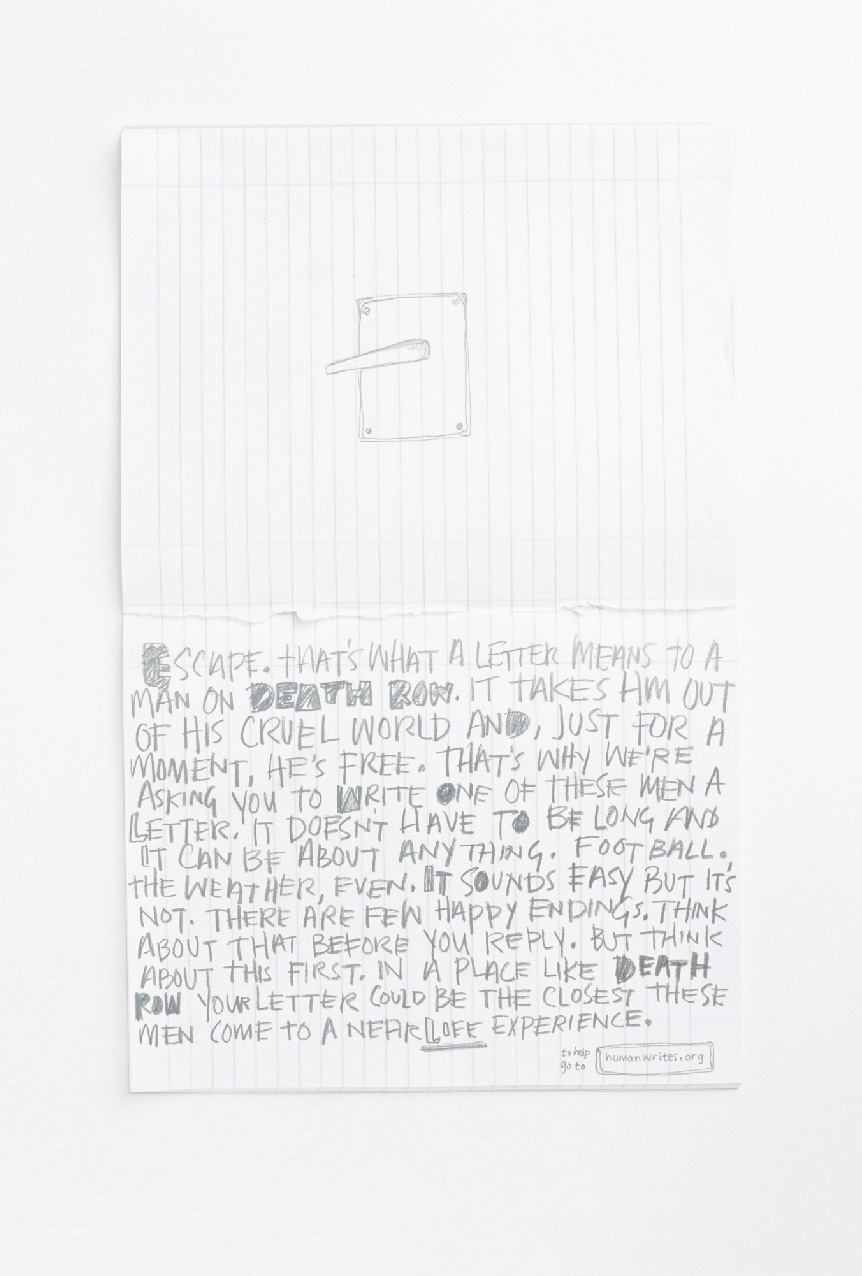 ESCAPE. THAT'S WHAT A LETTER MEANS TO A
MAN ON DEATH ROW. IT TAKES HIM OUT
OF HIS CRUEL WORLD AND, JUST FOR A
MOMENT, HE'S FREE. THAT'S WHY WE'RE
ASKING YOU TO WRITE ONE OF THESE MEN A
LETTER. IT DOESN'T HAVE TO BE LONG AND
IT CAN BE ABOUT ANYTHING. FOOTBALL.
THE WEATHER, EVEN. IT SOUNDS EASY BUT IT'S
NOT. THERE ARE FEW HAPPY ENDINGS. THINK
ABOUT THAT BEFORE YOU REPLY. BUT THINK
ABOUT THIS FIRST. IN A PLACE LIKE DEATH
ROW YOUR LETTER COULD BE THE CLOSEST THESE
MEN COME TO A NEAR LIFE EXPERIENCE.
to help
go to
humanwrites.org